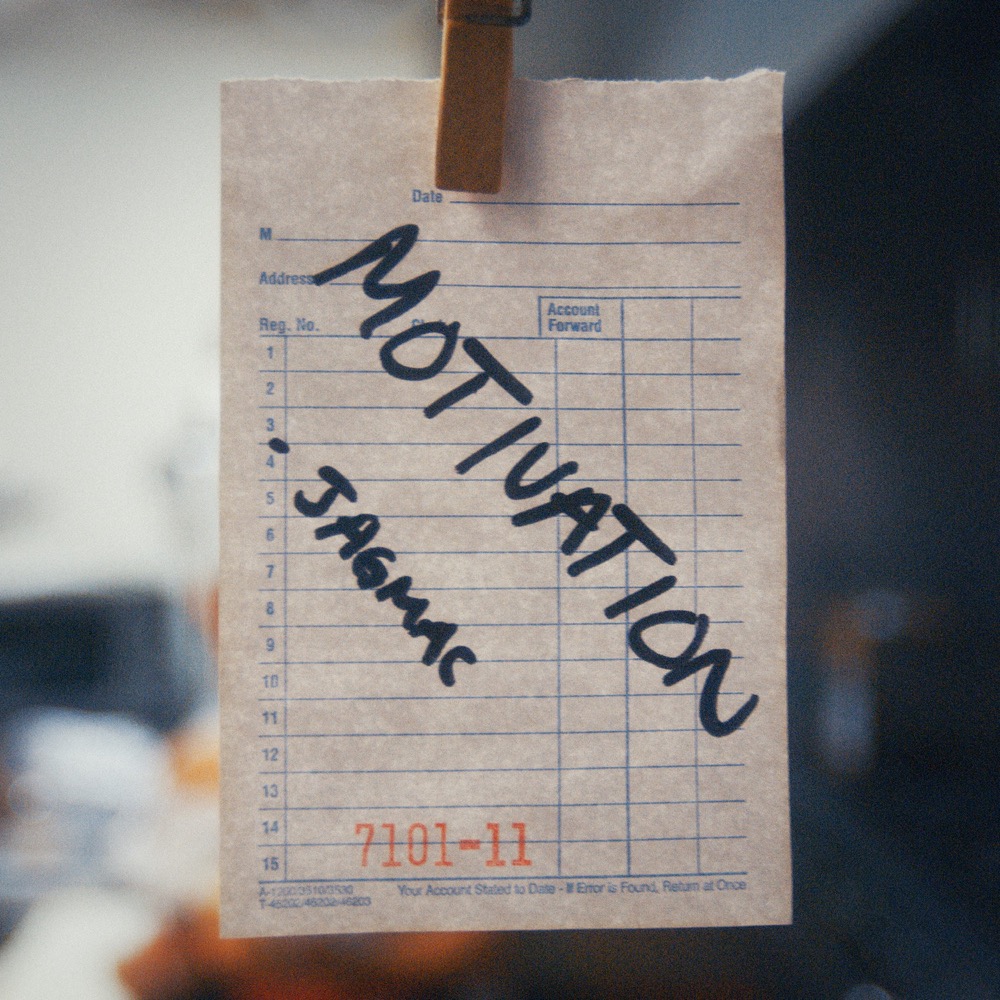 Date
M
Address
Reg. No.
Account
Forward
MOTIVATION
. JAGMAC
1
2
3
4
5
6
7
8
9
10
11
12
13
14
15
7101-11
A-1200/3510/3530
T-46202/46202/46203
Your Account Stated to Date - If Error is Found, Return at Once